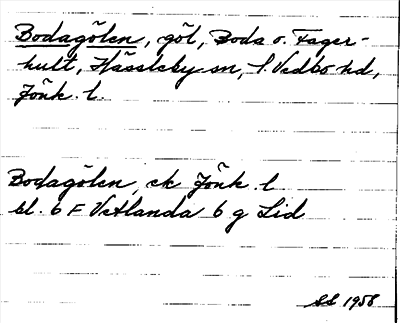 Bodagölen, göl, Boda o. Fager-
hult, Hässleby sn, S. Vedbo hd,
Jönk. l.
Bodagölen, ek Jönk. l
bl. 6 F Vetlanda 6 g Lid
SS 1958